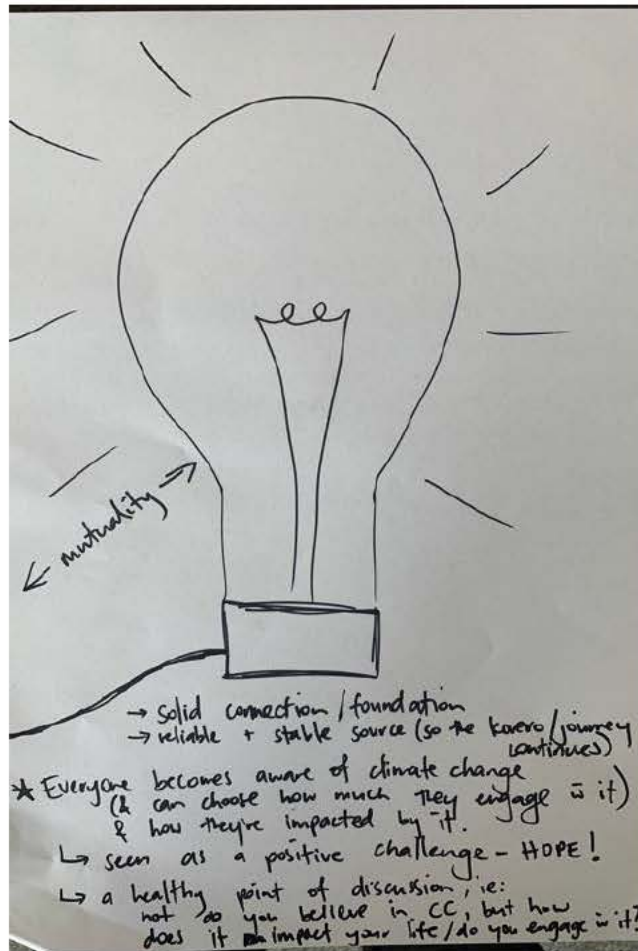 mutuality
→ solid connection/foundation
→ reliable + stable source (so the korero/journey
continues)
★ Everyone becomes aware of climate change
(& can choose how much they engage w̄ it)
& how they're impacted by it.
↳ seen as a positive challenge - HOPE!
↳ a healthy point of discussion, ie:
not do you believe in CC, but how
does it impact your life/do you engage w̄ it?